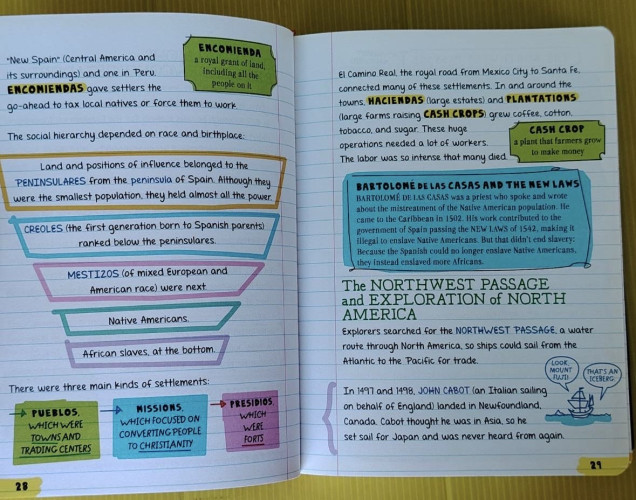 "New Spain" (Central America and
its surroundings) and one in Peru.
ENCOMIENDAS gave settlers the
go-ahead to tax local natives or force them to work.
ENCOMIENDA
a royal grant of land,
including all the
people on it
The social hierarchy depended on race and birthplace:
Land and positions of influence belonged to the
PENINSULARES from the peninsula of Spain. Although they
were the smallest population, they held almost all the power.
CREOLES (the first generation born to Spanish parents)
ranked below the peninsulares.
MESTIZOS (of mixed European and
American race) were next.
Native Americans.
African slaves, at the bottom.
There were three main kinds of settlements:
PUEBLOS,
WHICH WERE
TOWNS AND
TRADING CENTERS
MISSIONS,
WHICH FOCUSED ON
CONVERTING PEOPLE
TO CHRISTIANITY
PRESIDIOS,
WHICH
WERE
FORTS
28
El Camino Real, the royal road from Mexico City to Santa Fe,
connected many of these settlements. In and around the
towns, HACIENDAS (large estates) and PLANTATIONS
(large farms raising CASH CROPS) grew coffee, cotton,
tobacco, and sugar. These huge
operations needed a lot of workers.
The labor was so intense that many died.
CASH CROP
a plant that farmers grow
to make money
BARTOLOMÉ DE LAS CASAS AND THE NEW LAWS
BARTOLOMÉ DE LAS CASAS was a priest who spoke and wrote
about the mistreatment of the Native American population. He
came to the Caribbean in 1502. His work contributed to the
government of Spain passing the NEW LAWS of 1542, making it
illegal to enslave Native Americans. But that didn't end slavery:
Because the Spanish could no longer enslave Native Americans,
they instead enslaved more Africans.
The NORTHWEST PASSAGE
and EXPLORATION of NORTH
AMERICA
Explorers searched for the NORTHWEST PASSAGE, a water
route through North America, so ships could sail from the
Atlantic to the Pacific for trade.
LOOK,
MOUNT
FUJI!
THAT'S AN
ICEBERG.
In 1497 and 1498, JOHN CABOT (an Italian sailing
on behalf of England) landed in Newfoundland,
Canada. Cabot thought he was in Asia, so he
set sail for Japan and was never heard from again.
29